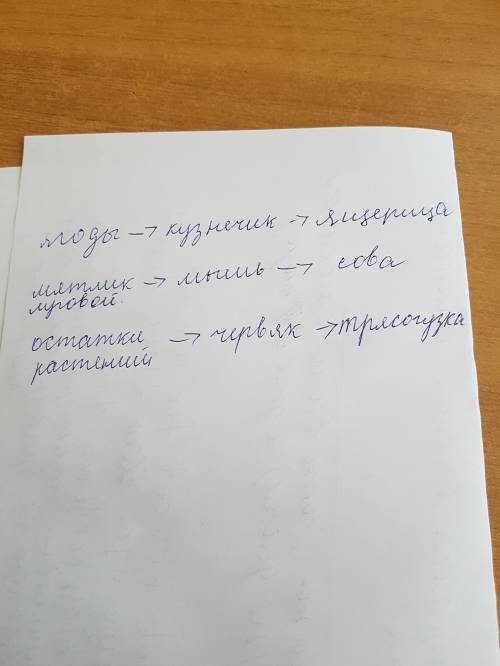 ягоды → кузнечик → ящерица
мятлик → мышь → сова
луговой
остатки → червяк → трясогузка
растений